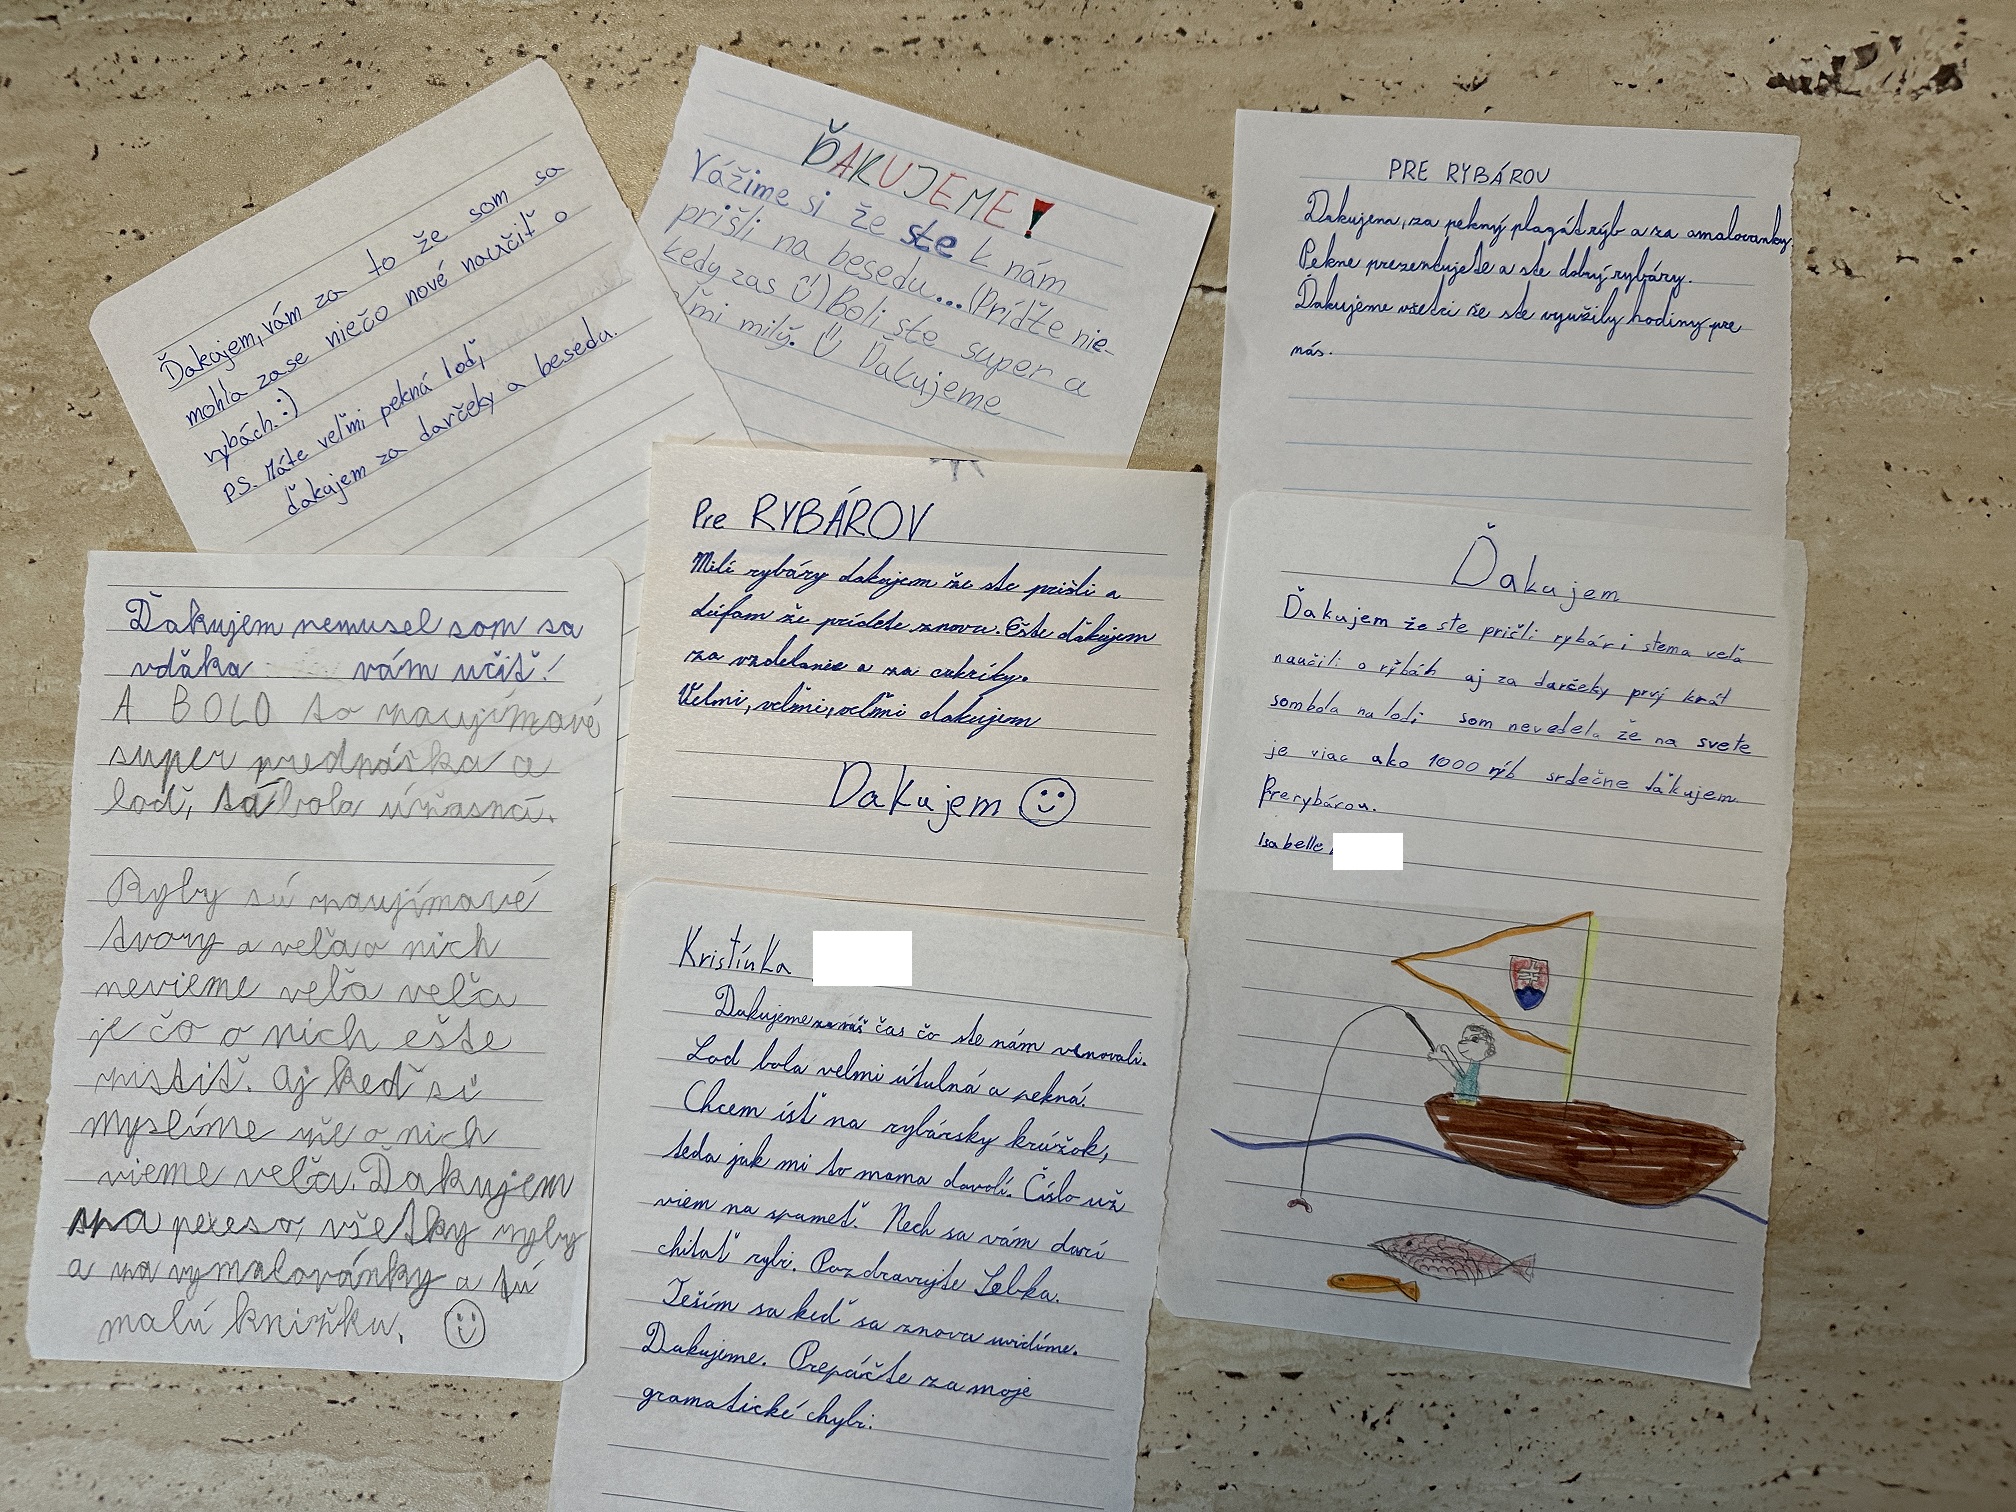 Ďakujem, vám za to že som sa
mohla zase niečo nové naučiť o
rybách.:)
PS. Máte veľmi pekná loď,
ďakujem za darčeky a besedu.
ĎAKUJEME!
Vážime si že ste k nám
prišli na besedu...(Príďte nie-
kedy zas ) Boli ste super a
milý. Ďakujeme
PRE RYBÁROV
Ďakujem, za pekný plagát rýb a za omalovanky.
Pekne prezentujete a ste dobrý rybáry.
Ďakujeme všetci že ste využily hodiny pre
nás.
Pre RYBÁROV
Milí rybáry dakujem že ste prišli a
dúfam že prídete znova. Ešte ďakujem
za vzdelanie a za cukríky.
Veľmi, veľmi, veľmi dakujem
Dakujem
Ďakujem
Ďakujem že ste pričli rybári stema veľa
naučili o rýbáh aj za darčeky prvý krát
sombola na lodi som nevedela že na svete
je viac ako 1000 rýb srdečne ďakujem
Prerybárov.
Isabelle
Ďakujem nemusel som sa
vďaka vám učiť!
A BOLO to zaujímavé
super prednáška a
loď, tá bola úžasná.
Ryby sú zaujímavé
tvory a veľa o nich
nevieme veľa veľa
je čo o nich ešte
zistiť. Aj keď si
myslíme že o nich
vieme veľa. Ďakujem
za pexeso, všetky ryby
a za vymaľovánky a tú
malú knižku.
Kristínka
Dakujeme za váš čas čo ste nám venovali.
Lod bola velmi útulná a pekná.
Chcem ísť na rybársky krúžok,
teda jak mi to mama dovolí. Číslo už
viem na spameť. Nech sa vám darí
chitať rybi. Pozdravujte Lebka.
Teším sa keď sa znova uvidíme.
Dakujeme. Prepáčte za moje
gramatické chybi.